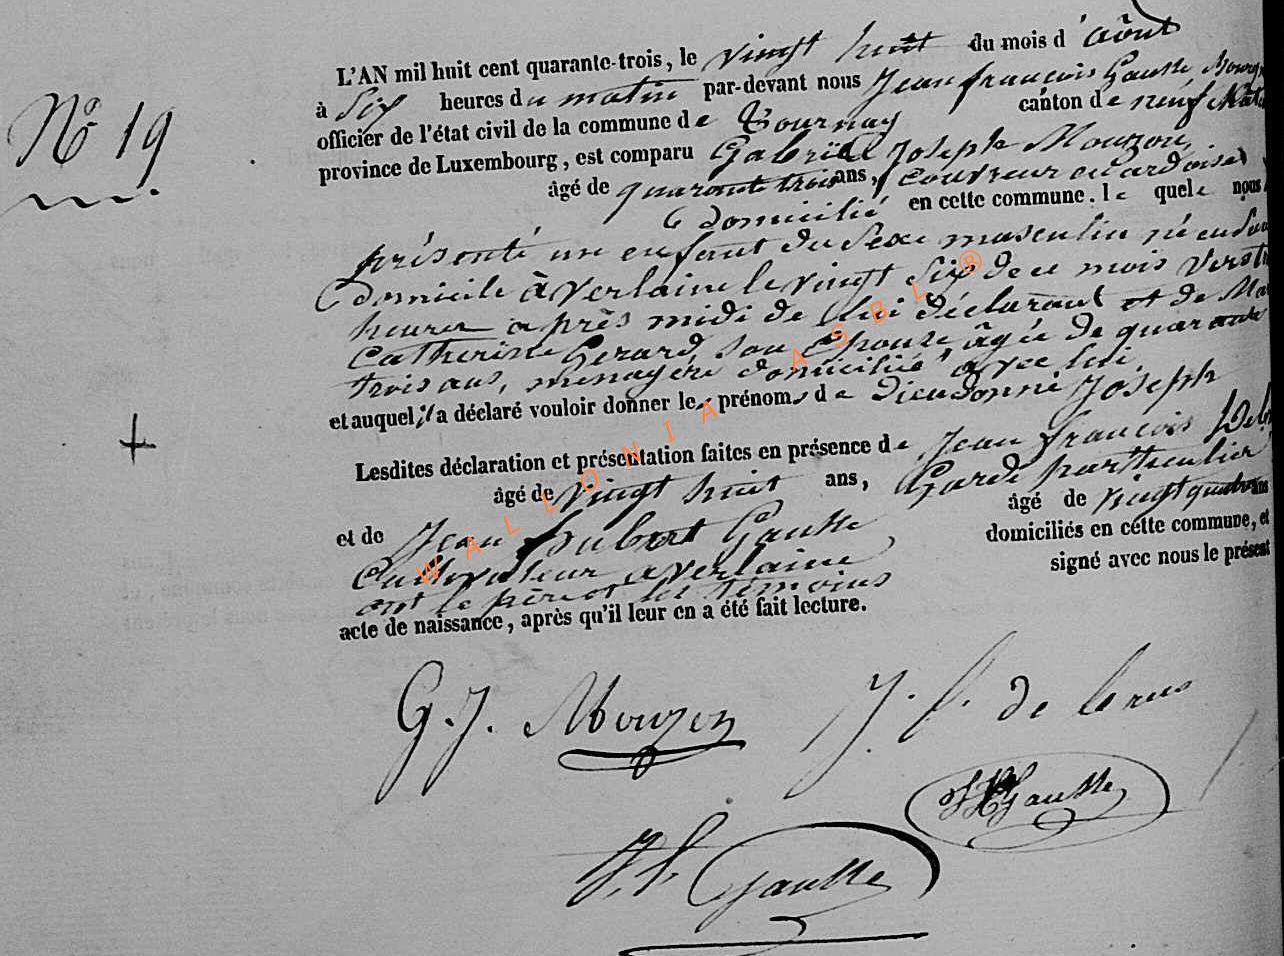 N° 19
L'AN mil huit cent quarante-trois, le vingt huit du mois d'août
à Six heures du matin par-devant nous Jean françois Gausse
officier de l'état civil de la commune de Tournay canton de neufchâ
province de Luxembourg, est comparu Gabriel Joseph Mouzon
âgé de quarante trois ans, couvreur en ardoises
domicilié en cette commune. le quel nous
présenté un enfant du sexe masculin né en son
domicile à Verlaine le vingt six de ce mois vers
heures après midi de lui déclarant et de Ma
Catherine Gerard, son Epouse âgée de quarante
trois ans, ménagère domiciliée avec lui
et auquel il a déclaré vouloir donner les prénoms de Dieudonné Joseph
Lesdites déclaration et présentation faites en présence de Jean françois
âgé de vingt huit ans, Garde particulier
et de Jean hubert Gausse âgé de vingt quatre ans
Cultivateur à Verlaine domiciliés en cette commune, et
ont le père et les témoins signé avec nous le présent
acte de naissance, après qu'il leur en a été fait lecture.
G. J. Mouzon
J. f. de
JH Gausse
J. f. Gausse
WALLONIA ASBL ®